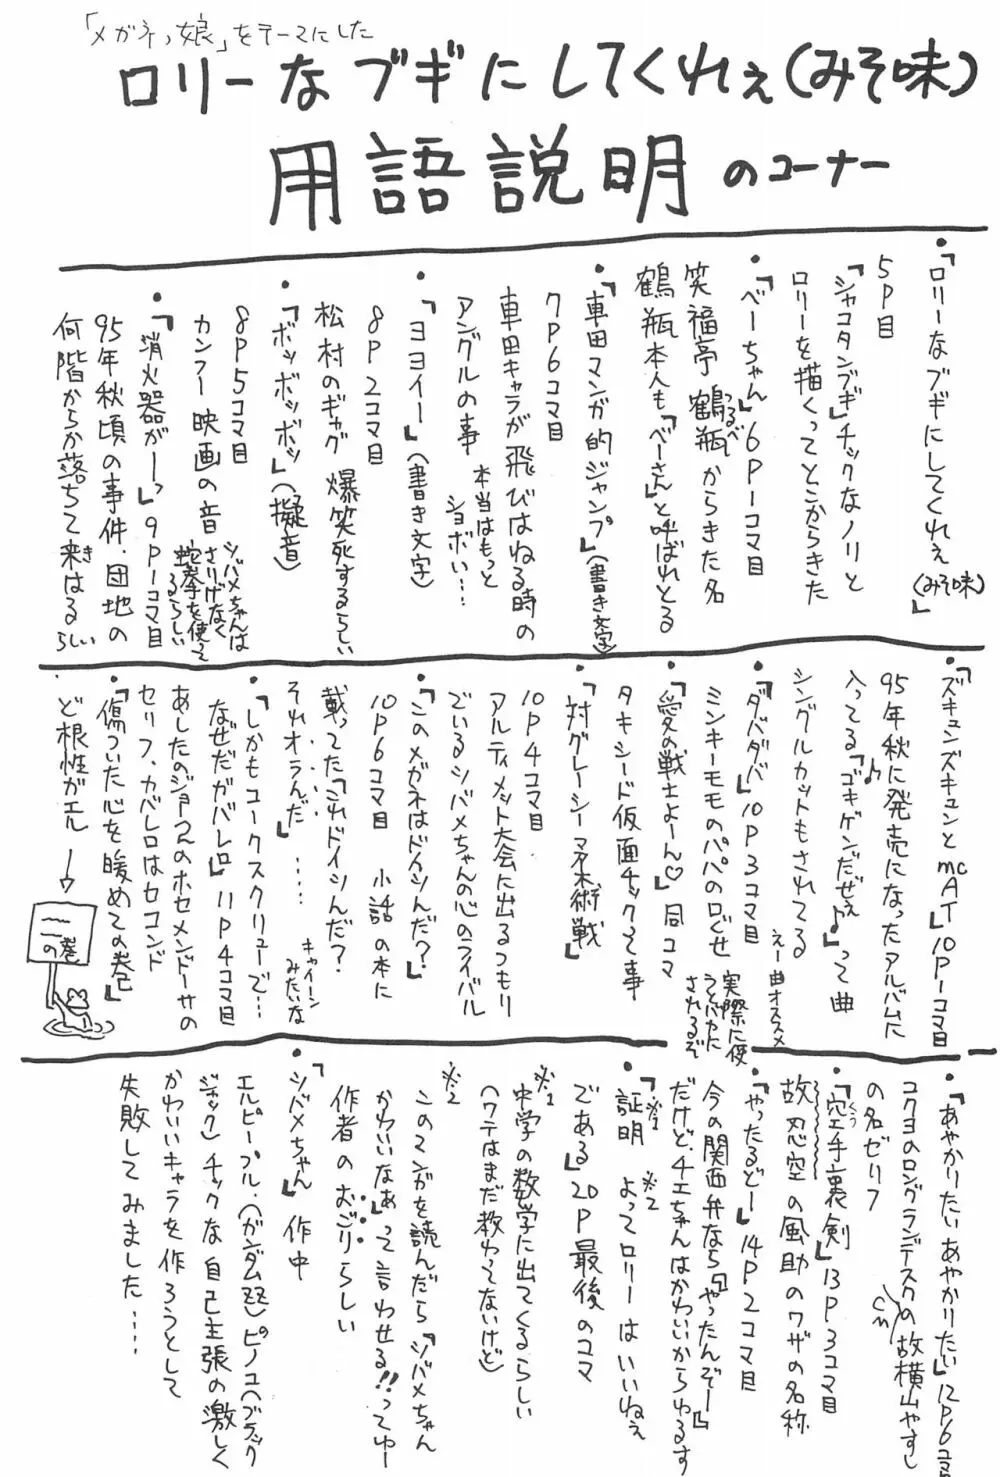 「メガネっ娘」をテーマにした
ロリーなブギにしてくれぇ(みそ味)
用語説明のコーナー
・「ロリーなブギにしてくれぇ(みそ味)」
5P目
「シャコタンブギ」チックなノリと
ロリーを描くってとこからきた
・「べーちゃん」6P1コマ目
笑福亭 鶴瓶からきた名
つるべ
鶴瓶本人も「べーさん」と呼ばれとる
・「車田マンガ的ジャンプ」(書き文字)
7P6コマ目
車田キャラが飛びはねる時の
アングルの事
本当はもっと
ショボい…
・「ヨヨイー」(書き文字)
8P2コマ目
松村のギャグ 爆笑死するらしい
・「ボッボッボッ」(擬音)
8P5コマ目
カンフー映画の音
シバメちゃんは
さりげなく
蛇拳を使って
るらしい
・「消火器がーっ」9P1コマ目
95年秋頃の事件.団地の
何階からか落ちて来はるらしい
き
・「ズキュンズキュンとmcAT」10P1コマ目
95年秋に発売になったアルバムに
入ってる「ゴキゲンだぜぇ♪」って曲
シングルカットもされてる
えー曲オススメ
・「ダバダバ」10P3コマ目
ミンキーモモのパパの口ぐせ
実際に使
うとバカに
されるぞ
・「愛の戦士よーん♡」同コマ
タキシード仮面チックって事
・「対グレーシーマネ木術戦」
10P4コマ目
アルティメット大会に出るつもり
でいるシバメちゃんの心のライバル
・「このメガネはドイツんだ?」
10P6コマ目 小話の本に
載ってた「これドイツんだ?
それオランだ」……
キャイーン
みたいな
・「しかもコークスクリューで…
なぜだカバレロ」11P4コマ目
あしたのジョー2のホセメンドーサの
セリフ、カバレロはセコンド
・「傷ついた心を暖めての巻」
ど根性ガエル→
の巻
・「あやかりたいあやかりたい」12P6コマ目
コクヨのロングランデスクのCM
故横山やすし
の名ゼリフ
・「空手裏剣」13P3コマ目
くう
故忍空の風助のワザの名称
・「やったるどー」14P2コマ目
今の関西弁なら「やったんぞー」
だけど、チエちゃんはかわいいからゆるす
・「証明※1 よってロリーはいいねぇ※2
である」20P最後のコマ
※1
中学の数学に出てくるらしい
(ワテはまだ教わってないけど)
※2
このマンガを読んだら「シバメちゃん
かわいいなぁ」って言わせる!!ってゆー
作者のおごりらしい
・「シバメちゃん」作中
エルピープル.(ガンダムZZ)ピノコ(ブラック
ジャック)チックな自己主張の激しく
かわいいキャラを作ろうとして
失敗してみました……